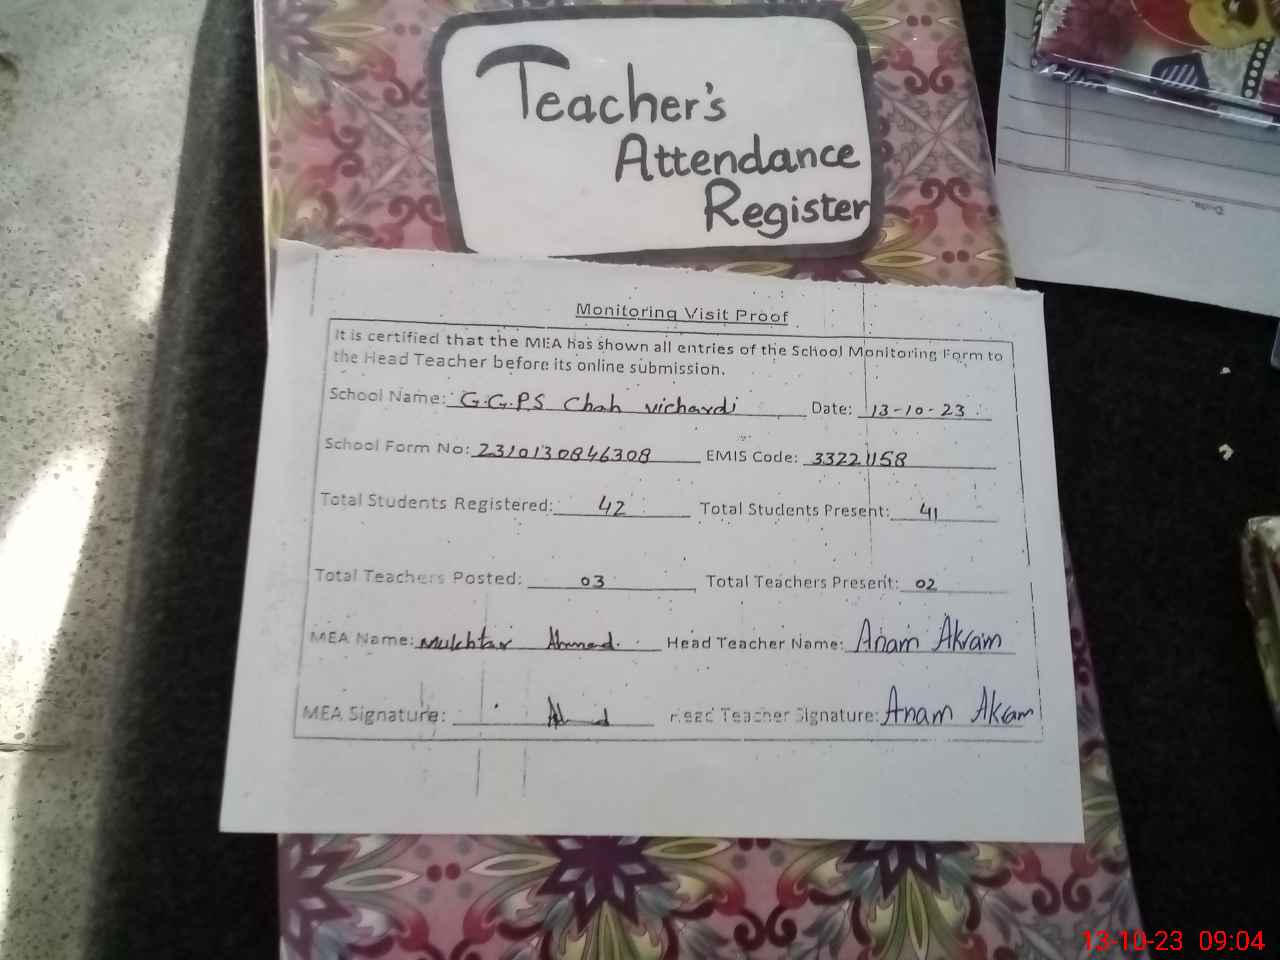 Teacher's
Attendance
Register
Monitoring Visit Proof
It is certified that the MEA has shown all entries of the School Monitoring Form to
the Head Teacher before its online submission.
School Name: G.G.P.S Chah vichardi Date: 13-10-23
School Form No: 2310130846308 EMIS Code: 33221158
Total Students Registered: 42 Total Students Present: 41
Total Teachers Posted: 03 Total Teachers Present: 02
MEA Name: Mukhtar Ahmad. Head Teacher Name: Anam Akram
MEA Signature: Ahmad Head Teacher Signature: Anam Akram
Date.
13-10-23 09:04